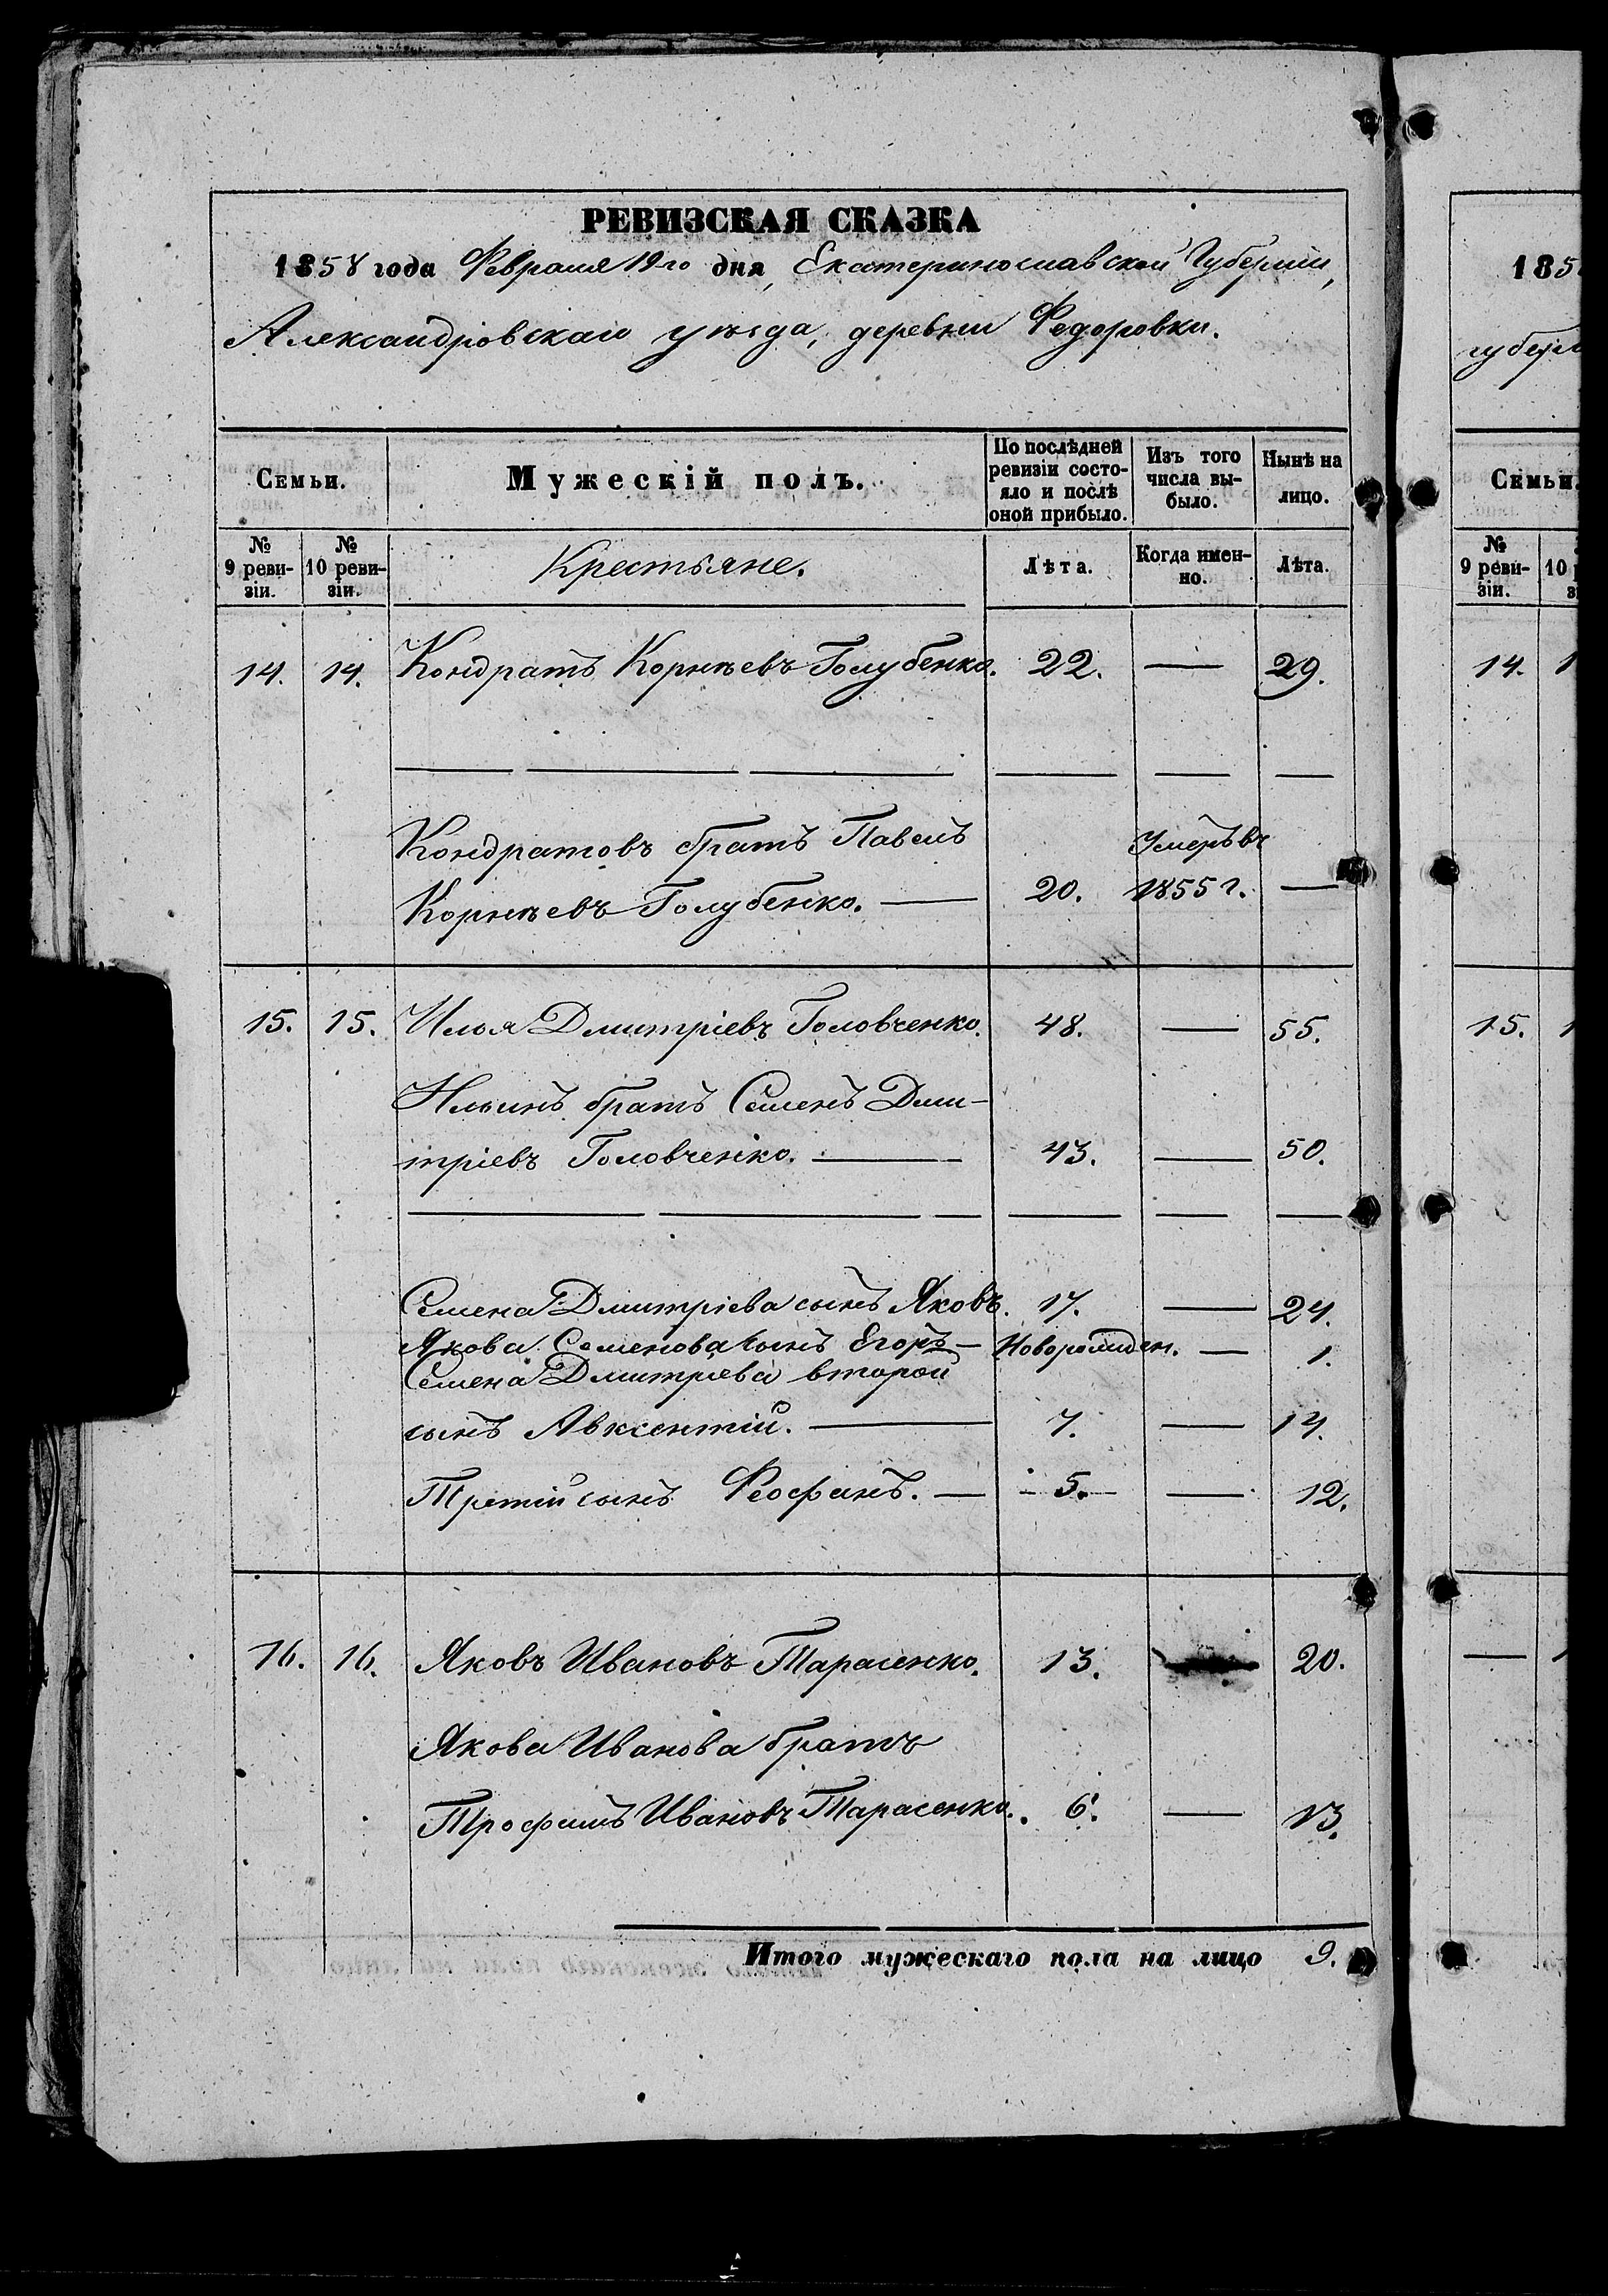 РЕВИЗСКАЯ СКАЗКА
1858 года Февраля 19го дня, Екатеринославской Губерніи,
Александровскаго уѣзда, деревни Федоровки.
Семьи. Мужескій полъ. По послѣдней ревизіи состояло и послѣ оной прибыло. Изъ того числа выбыло. Нынѣ на лицо.
№ 9 ревизіи. № 10 ревизіи. Крестьяне. Лѣта. Когда именно. Лѣта.
14. 14. Кондратъ Корнѣевъ Голубенко. 22. — 29.
Кондратовъ братъ Павелъ Умеръ въ
Корнѣевъ Голубенко. — 20. 1855 г. —
15. 15. Илья Дмитріевъ Головченко. 48. — 55.
Ильинъ братъ Семенъ Дми-
тріевъ Головченко. — 43. — 50.
Семена Дмитріева сынъ Яковъ. 17. — 24.
Якова Семенова сынъ Егоръ — Новорожден. — 1.
Семена Дмитріева второй
сынъ Авксентій. — 7. — 14.
Третій сынъ Феофанъ. — 5. — 12.
16. 16. Яковъ Ивановъ Тарасенко. 13. — 20.
Якова Иванова братъ
Трофимъ Ивановъ Тарасенко. 6. — 13.
Итого мужескаго пола на лицо 9.
185
губерн
Семьи.
№ 9 ревизіи. 10
14. 1
15. 1
— 1